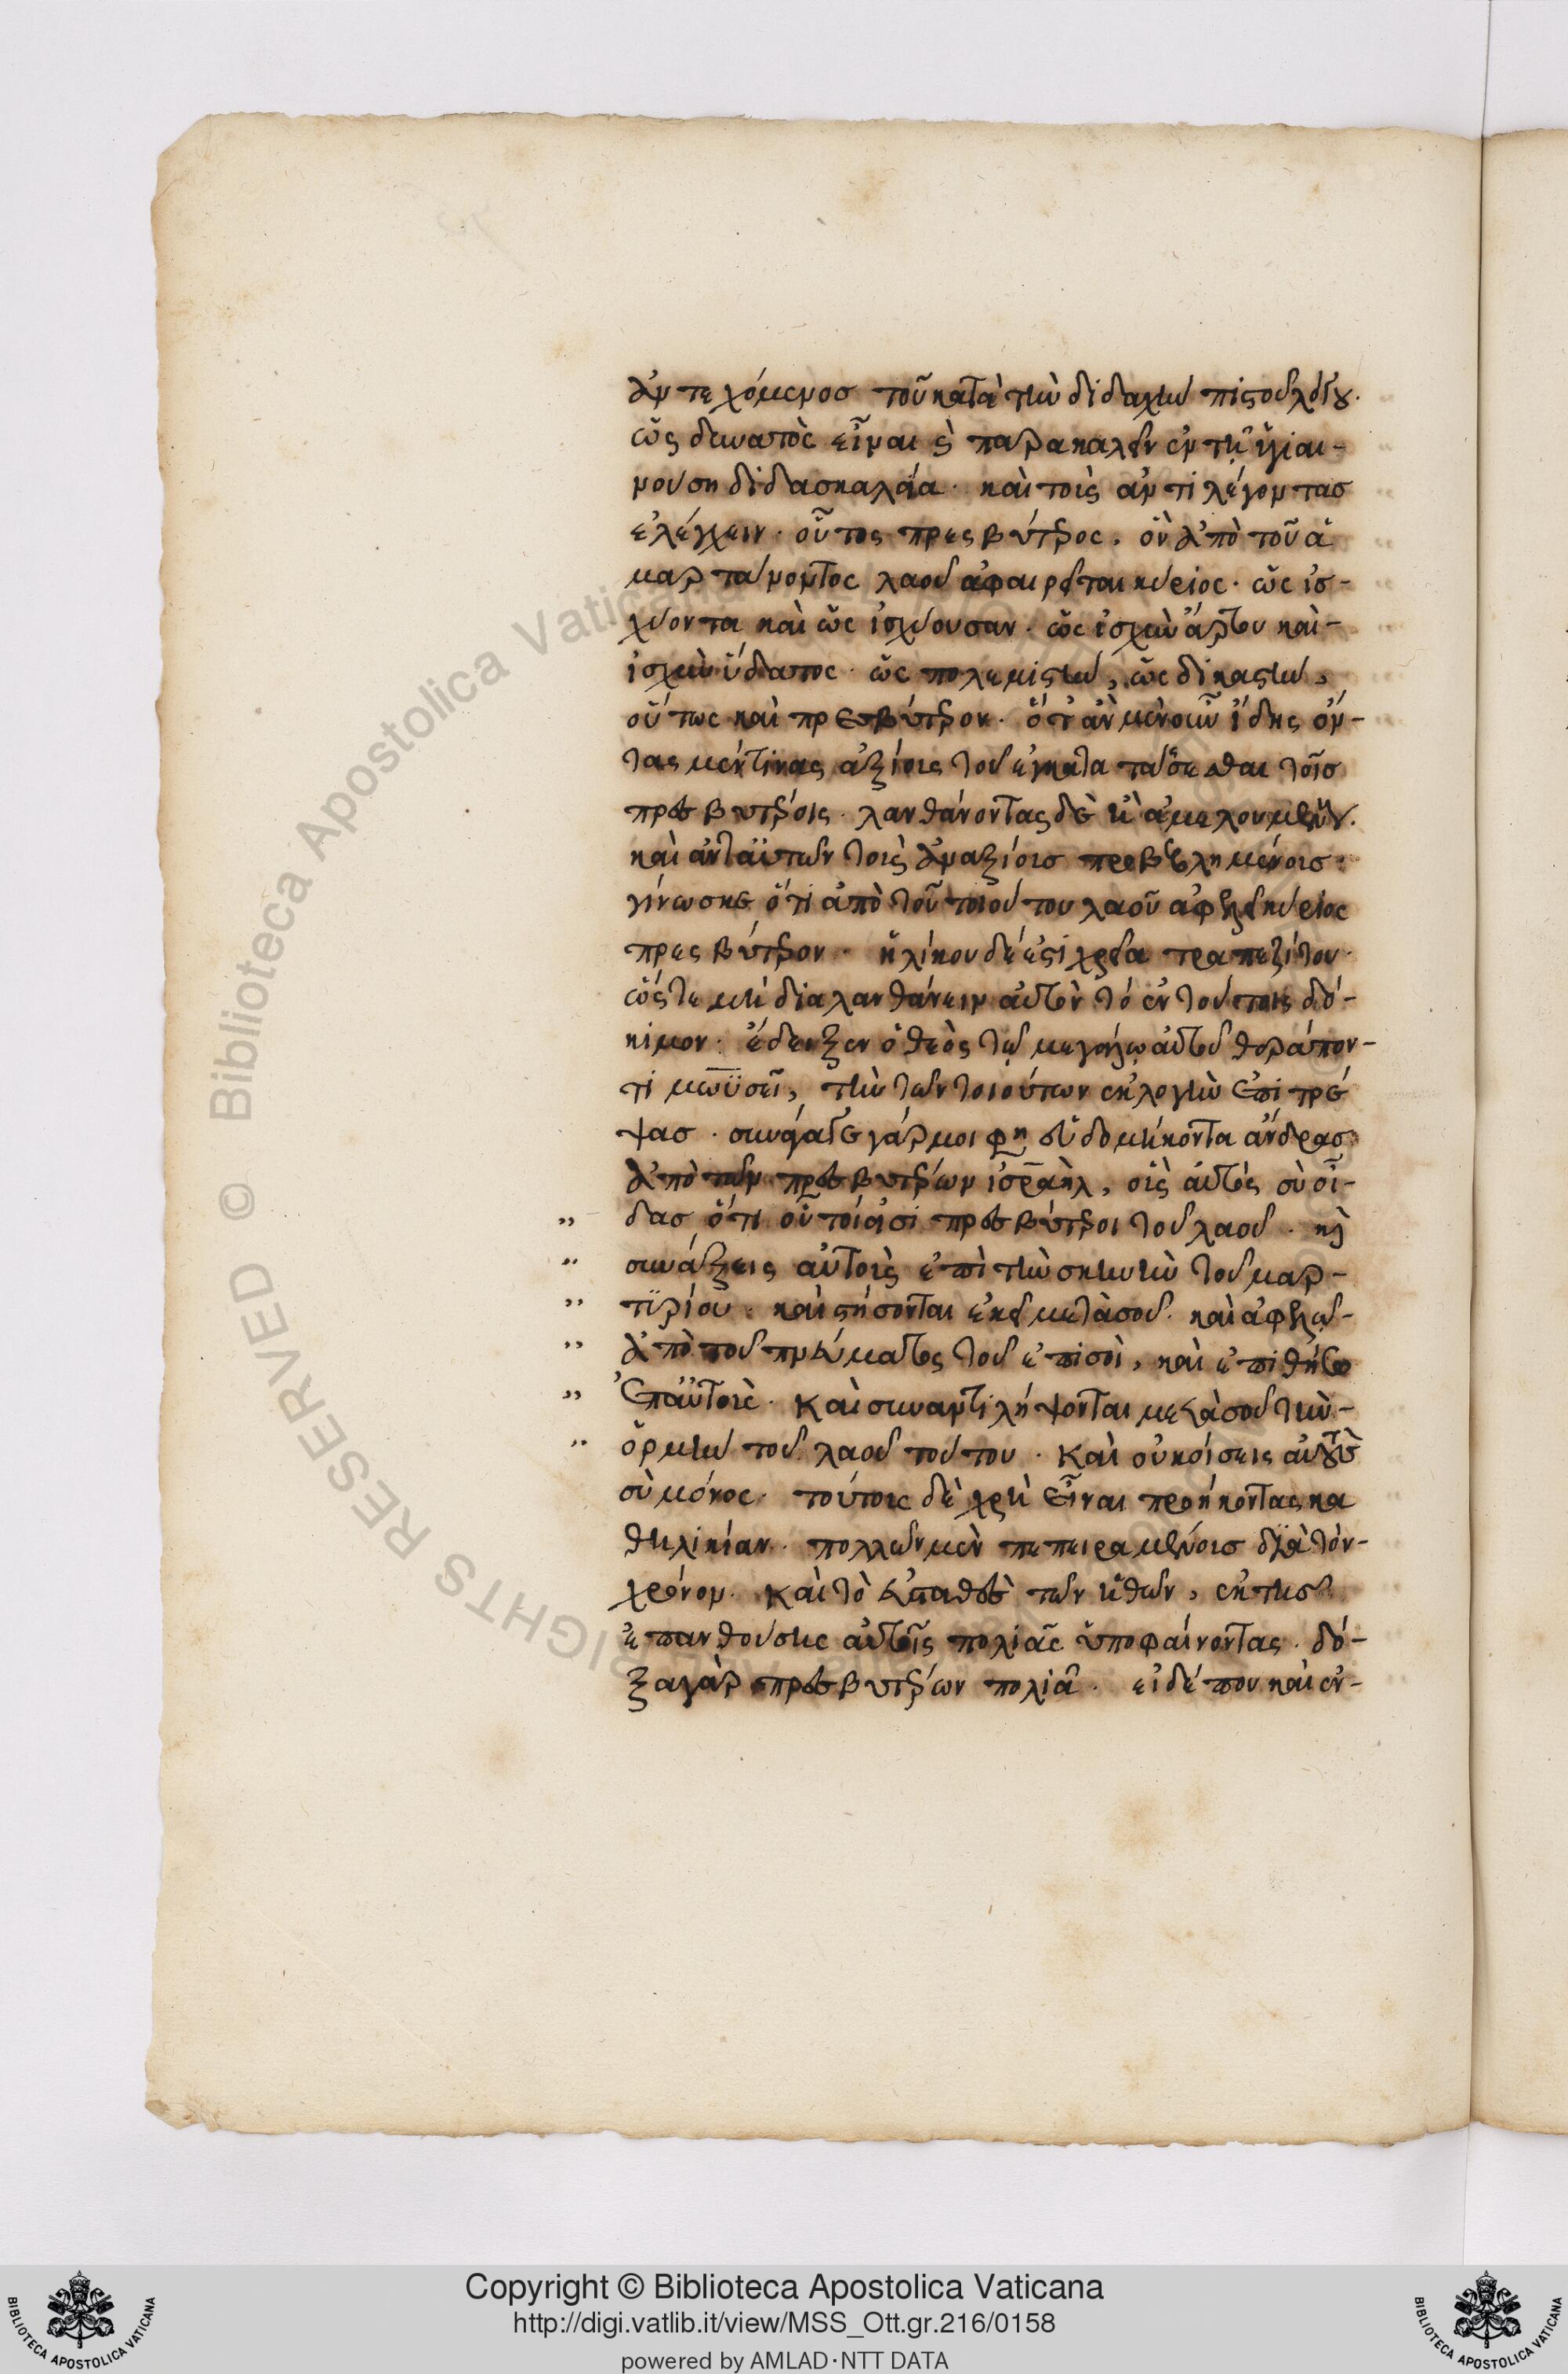 ἀντεχόμενοσ τοῦ κατὰ τὴν διδαχὴν πιστοῦ λόγου.
ὡς δυνατὸς εἶναι καὶ παρακαλεῖν ἐν τῇ ὑγιαι-
νούση διδασκαλία· καὶ τοὺς ἀντιλέγοντασ
ἐλέγχειν· οὗτος πρεσβύτερος, ὃν ἀπὸ τοῦ ἁ
μαρτάνοντος λαοῦ ἀφαιρεῖται κύριος· ὡς ἰσ-
χύοντα καὶ ὡς ἰσχύουσαν· ὡς ἰσχὺν ἄρτου καὶ-
ἰσχὺν ὕδατος· ὡς πολεμιστὴν, ὡς δικαστὴν,
οὕτως καὶ πρεσβύτερον· ὅτἂν μὲν οὖν ἴδης ὄν-
τας μέν τινας ἀξίους τοῦ ἐγκατατάσσεσθαι τοῖσ
πρεσβυτέροις· λανθάνοντας δὲ ἢ ἀμελουμένους.
καὶ ἀντ αὐτῶν τοὺς ἀναξίουσ προβεβλημένουσ·
γίνωσκε ὅτι ἀπὸ τοῦ τοιούτου λαοῦ ἀφεῖλε κύριος
πρεσβύτερον· ἡλίκου δέ ἐστι χρεία τραπεζίτου·
ὥστε μὴ διαλανθάνειν αὐτὸν τὸ ἐν τούτοις δό-
κιμον· ἔδειξεν ὁ θεὸς τῷ μεγάλῳ αὐτοῦ θεράπον-
τι μωϋσεῖ, τὴν τῶν τοιούτων ἐκλογὴν ἐπιτρέ
ψασ· συνάγαγε γάρ μοι φη ἑβδομήκοντα ἄνδρασ
ἀπὸ τῶν πρεσβυτέρων ἰσραὴλ, οὓς αὐτὸς σὺ οἶ-
" δασ ὅτι οὗτοί εἰσι πρεσβύτεροι τοῦ λαοῦ· καὶ
" συνάξεις αὐτοὺς ἐπὶ τὴν σκηνὴν τοῦ μαρ-
" τϋρίου· καὶ στήσονται ἐκεῖ μετὰ σοῦ· καὶ ἀφελῶ-
" ἀπὸ τοῦ πνεύματος τοῦ ἐπὶ σοὶ, καὶ ἐπιθήσω
" ἐπ αὐτοὺς· Καὶ συναντιλήψονται μετὰ σοῦ τὴν-
" ὁρμὴν τοῦ λαοῦ τούτου· Καὶ οὐκ οἴσεις αὐτοὺσ
σὺ μόνος· τούτους δὲ χρὴ εἶναι προήκοντας κα
θ ἡλικίαν· πολλῶν μὲν πεπειραμένουσ διὰ τὸν-
χρόνον· Καὶ τὸ εὐπαθὲσ τῶν ἠθῶν, ἐκ τησ
ἐπανθούσης αὐτοῖς πολιᾶς ὑποφαίνοντας· δό-
ξα γὰρ πρεσβυτέρων πολιαῖ· εἰ δέ που καὶ ἐν-
Copyright © Biblioteca Apostolica Vaticana
http://digi.vatlib.it/view/MSS_Ott.gr.216/0158
powered by AMLAD·NTT DATA
BIBLIOTECA APOSTOLICA VATICANA
BIBLIOTECA APOSTOLICA VATICANA